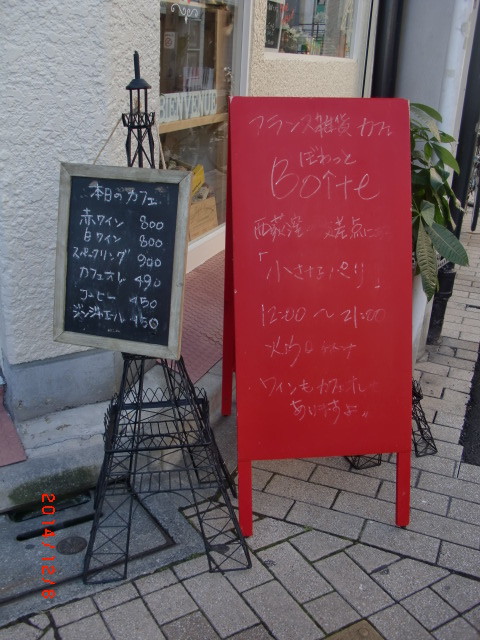 BIENVENUE
本日のカフェ
赤ワイン 800
白ワイン 800
スパークリング 900
カフェオレ 490
コーヒー 450
ジンジャエール 450
フランス雑貨 カフェ
ぼわっと
Boîte
西荻窪
「小さなパリ」
12:00〜21:00
ワインもカフェオレ
あいますよ
2014/12/8